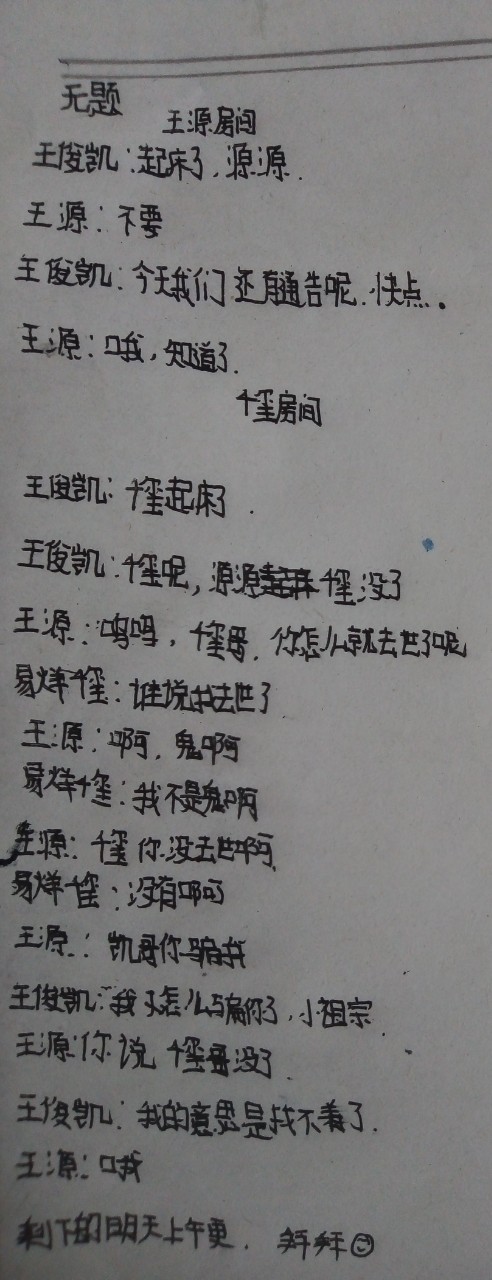 无题
王源房间
王俊凯:起床了,源源.
王源:不要
王俊凯:今天我们还有通告呢.快点。
王源:哦,知道了.
千玺房间
王俊凯:千玺起床了.
王俊凯:千玺呢,源源千玺没了
王源:呜呜,千玺哥.你怎么就去世了呢
易烊千玺:谁说我去世了
王源:啊,鬼啊
易烊千玺:我不是鬼啊
王源:千玺你没去世啊.
易烊千玺:没有啊
王源:凯哥你骗我
王俊凯:我又怎么骗你了,小祖宗.
王源:你说千玺哥没了.
王俊凯:我的意思是找不着了.
王源:哦
剩下的明天上午更.拜拜☺